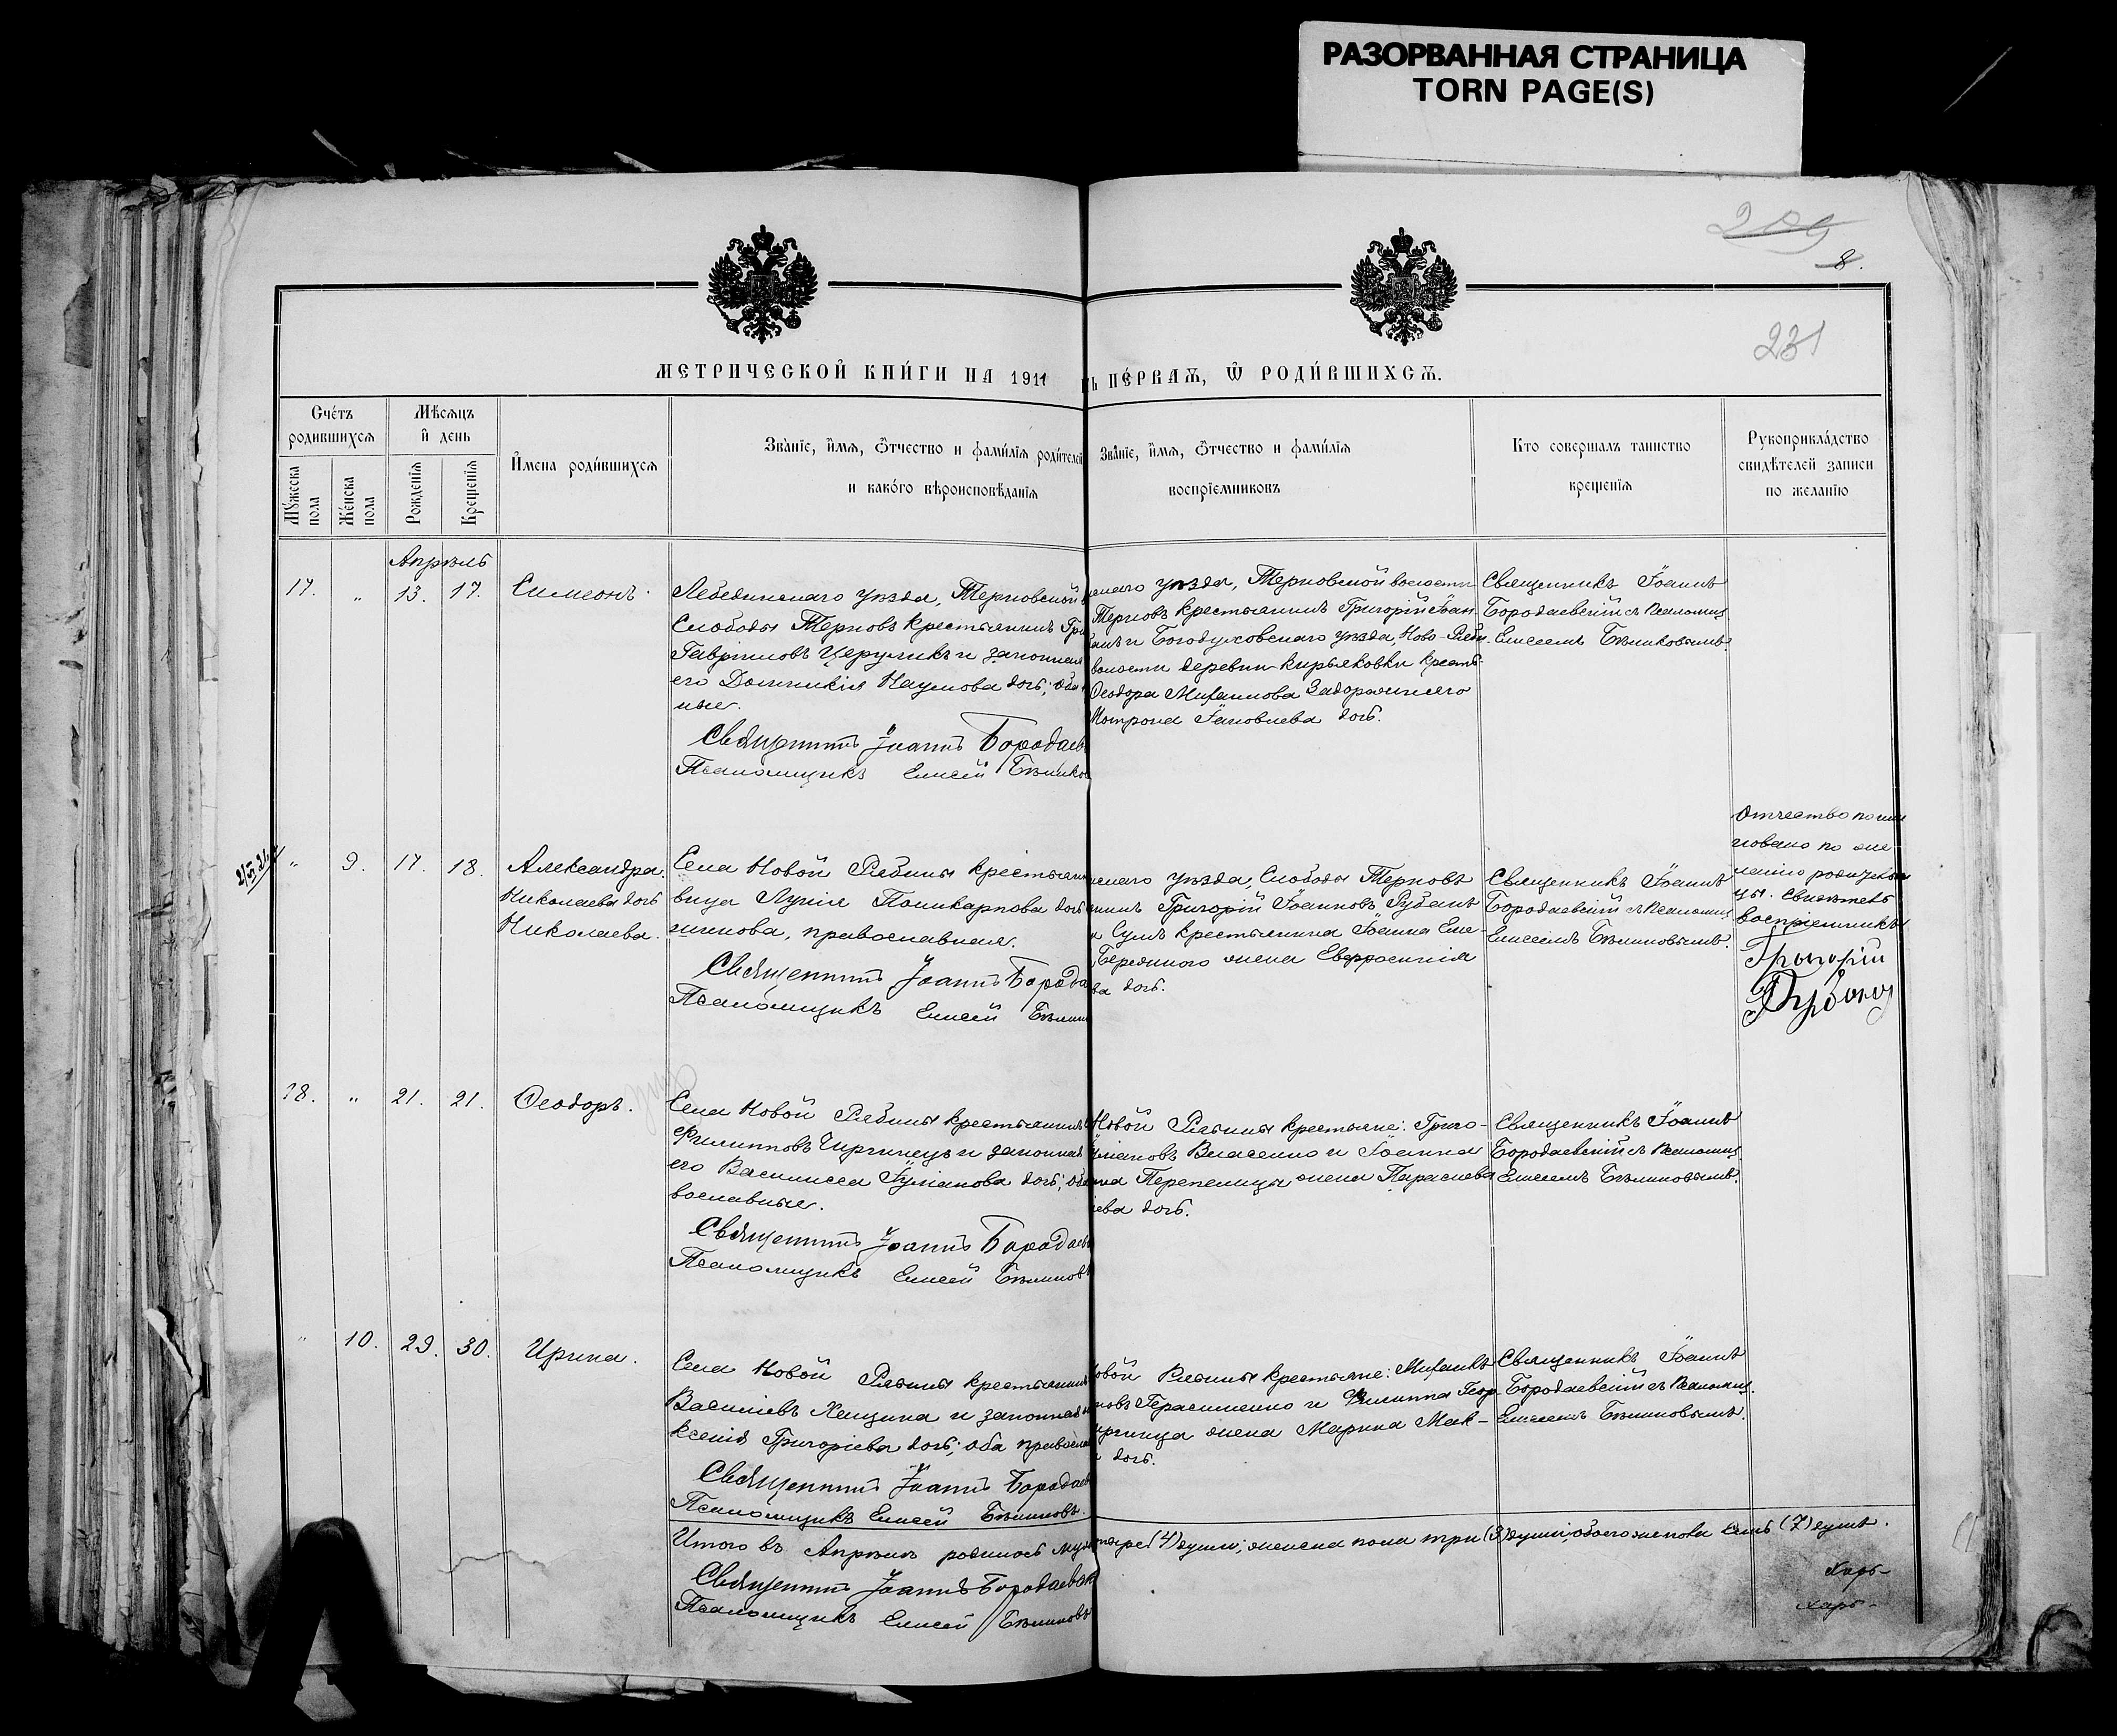 РАЗОРВАННАЯ СТРАНИЦА
TORN PAGE(S)
209
8.
231
МЕТРИЧЕСКОЙ КНИ́ГИ НА 1911
ПЕ́РВАѦ, Ѿ РОДИ́ВШИХСѦ.
Счéтъ родившихсѧ
Мѣсѧцъ и҆ день
Мꙋ́жеска пола
Жéнска пола
Рождéнїѧ
Крещéнїѧ
И҆мена роди́вшихсѧ
Звáнїе, и҆мѧ, ѻ҆тчество и фами́лїѧ роди́телей
и какóго вѣроисповѣ́данїѧ
Звáнїе, и҆мѧ, ѻ҆тчество и фами́лїѧ
воспрїемниковъ
Кто совершалъ таинство
крещенїѧ
Рукоприклáдство
свидѣтелей записи
по желанїю
Апрѣль
17. " 13. 17. Симеонъ.
Лебединскаго уѣзда, Терновской
Слободы Терновъ крестьянинъ Гри
Гавриловъ Церуликъ и законная
его Домникія Наумова дочь; оба
ные.
Священникъ Іоаннъ Бородаев
Псаломщикъ Елисей Бѣлико
скаго уѣзда, Терновской волости
Терновъ крестьянинъ Григорій Іоан-
Богодуховскаго уѣзда, Ново-Ряби-
волости деревни Кирьяковки крестьян
Ѳеодора Михаилова Задорожнего
Мотрона Іаковлева дочь.
Священникъ Іоаннъ
Бородаевскій съ Псаломщ.
Елисеемъ Бѣликовымъ.
" 9. 17. 18. Александра
Николаева дочь
Николаева.
Села Новой Рябины крестьян
вица Лукія Поликарпова дочь
никова, православная.
Священникъ Іоаннъ Борода
Псаломщикъ Елисей Бѣлик
скаго уѣзда, Слободы Терновъ
Григорій Іоанновъ Рубанъ
и Сумъ крестьянина Іоанна Еме-
Бережного жена Евфросинія
ва дочь.
Священникъ Іоаннъ
Бородаевскій съ Псаломщ
Елисеемъ Бѣликовымъ.
Отчество по име
новано по же-
ланію родитель
цы. Свидѣтель
воспріемникъ
Григорій
Рубанъ
18. " 21. 21. Ѳеодоръ.
Села Новой Рябины крестьянинъ
Филипповъ Чирчинецъ и законная
его Василисса Іуліанова дочь; оба
вославные.
Священникъ Іоаннъ Бородаев
Псаломщикъ Елисей Бѣликовъ
Новой Рябины крестьяне: Григо-
Власенко и Іоанна
Перепелицы жена Параскева
ева дочь.
Священникъ Іоаннъ
Бородаевскій съ Псаломщ
Елисеемъ Бѣликовымъ.
" 10. 29. 30. Ирина.
Села Новой Рябины крестьянинъ
Васильевъ Лещина и законная
ксенія Григоріева дочь; оба правосла
Священникъ Іоаннъ Бородаев
Псаломщикъ Елисей Бѣликовъ.
овой Рябины крестьяне: Михаилъ
новъ Герасименко и Филиппа Геор-
жена Марина Мак-
дочь.
Священникъ Іоаннъ
Бородаевскій съ Псаломщ.
Елисеемъ Бѣликовымъ.
Итого въ Апрѣлѣ родилось муж
тыре (4) души; женска пола три (3) души; обоего же пола семь (7) душъ.
Священникъ Іоаннъ Бородаевск
Псаломщикъ Елисей Бѣликовъ
Харь-
Харь-